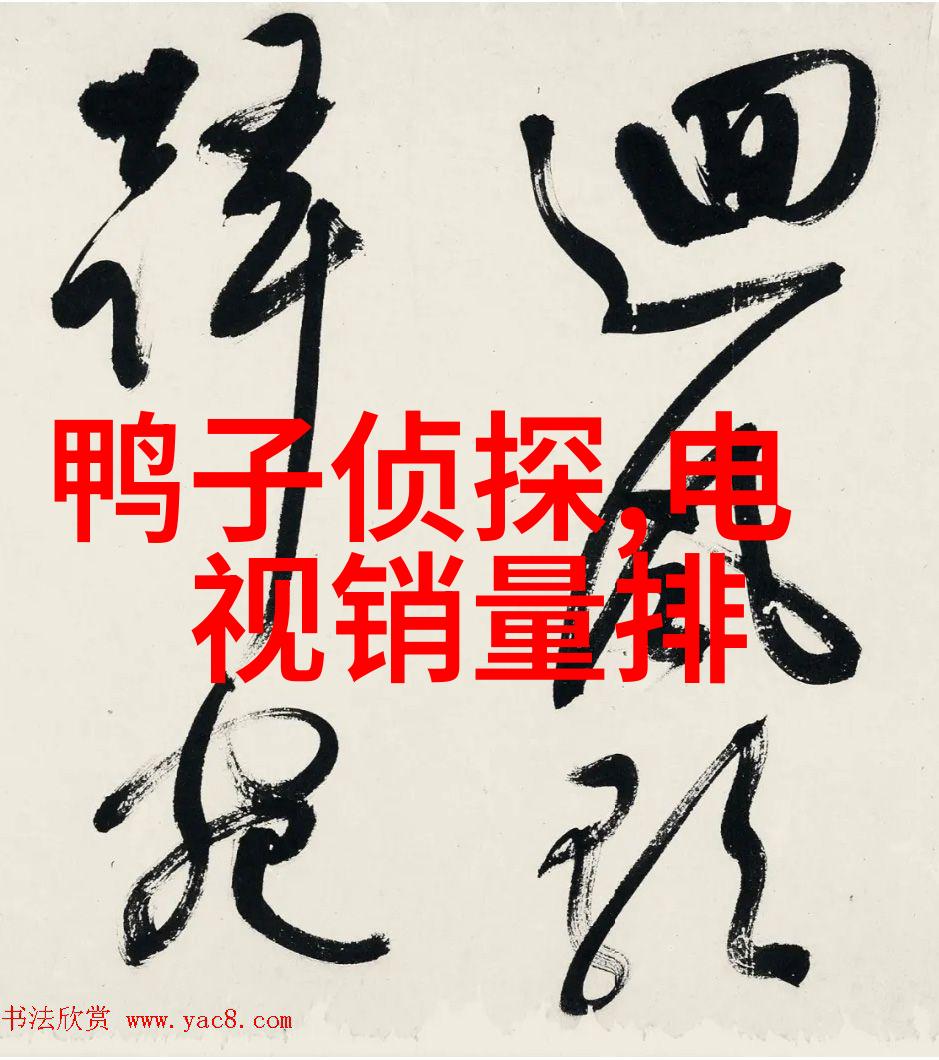 迴風
鸭子侦探,电
视销量排
书法欣赏 www.yac8.com